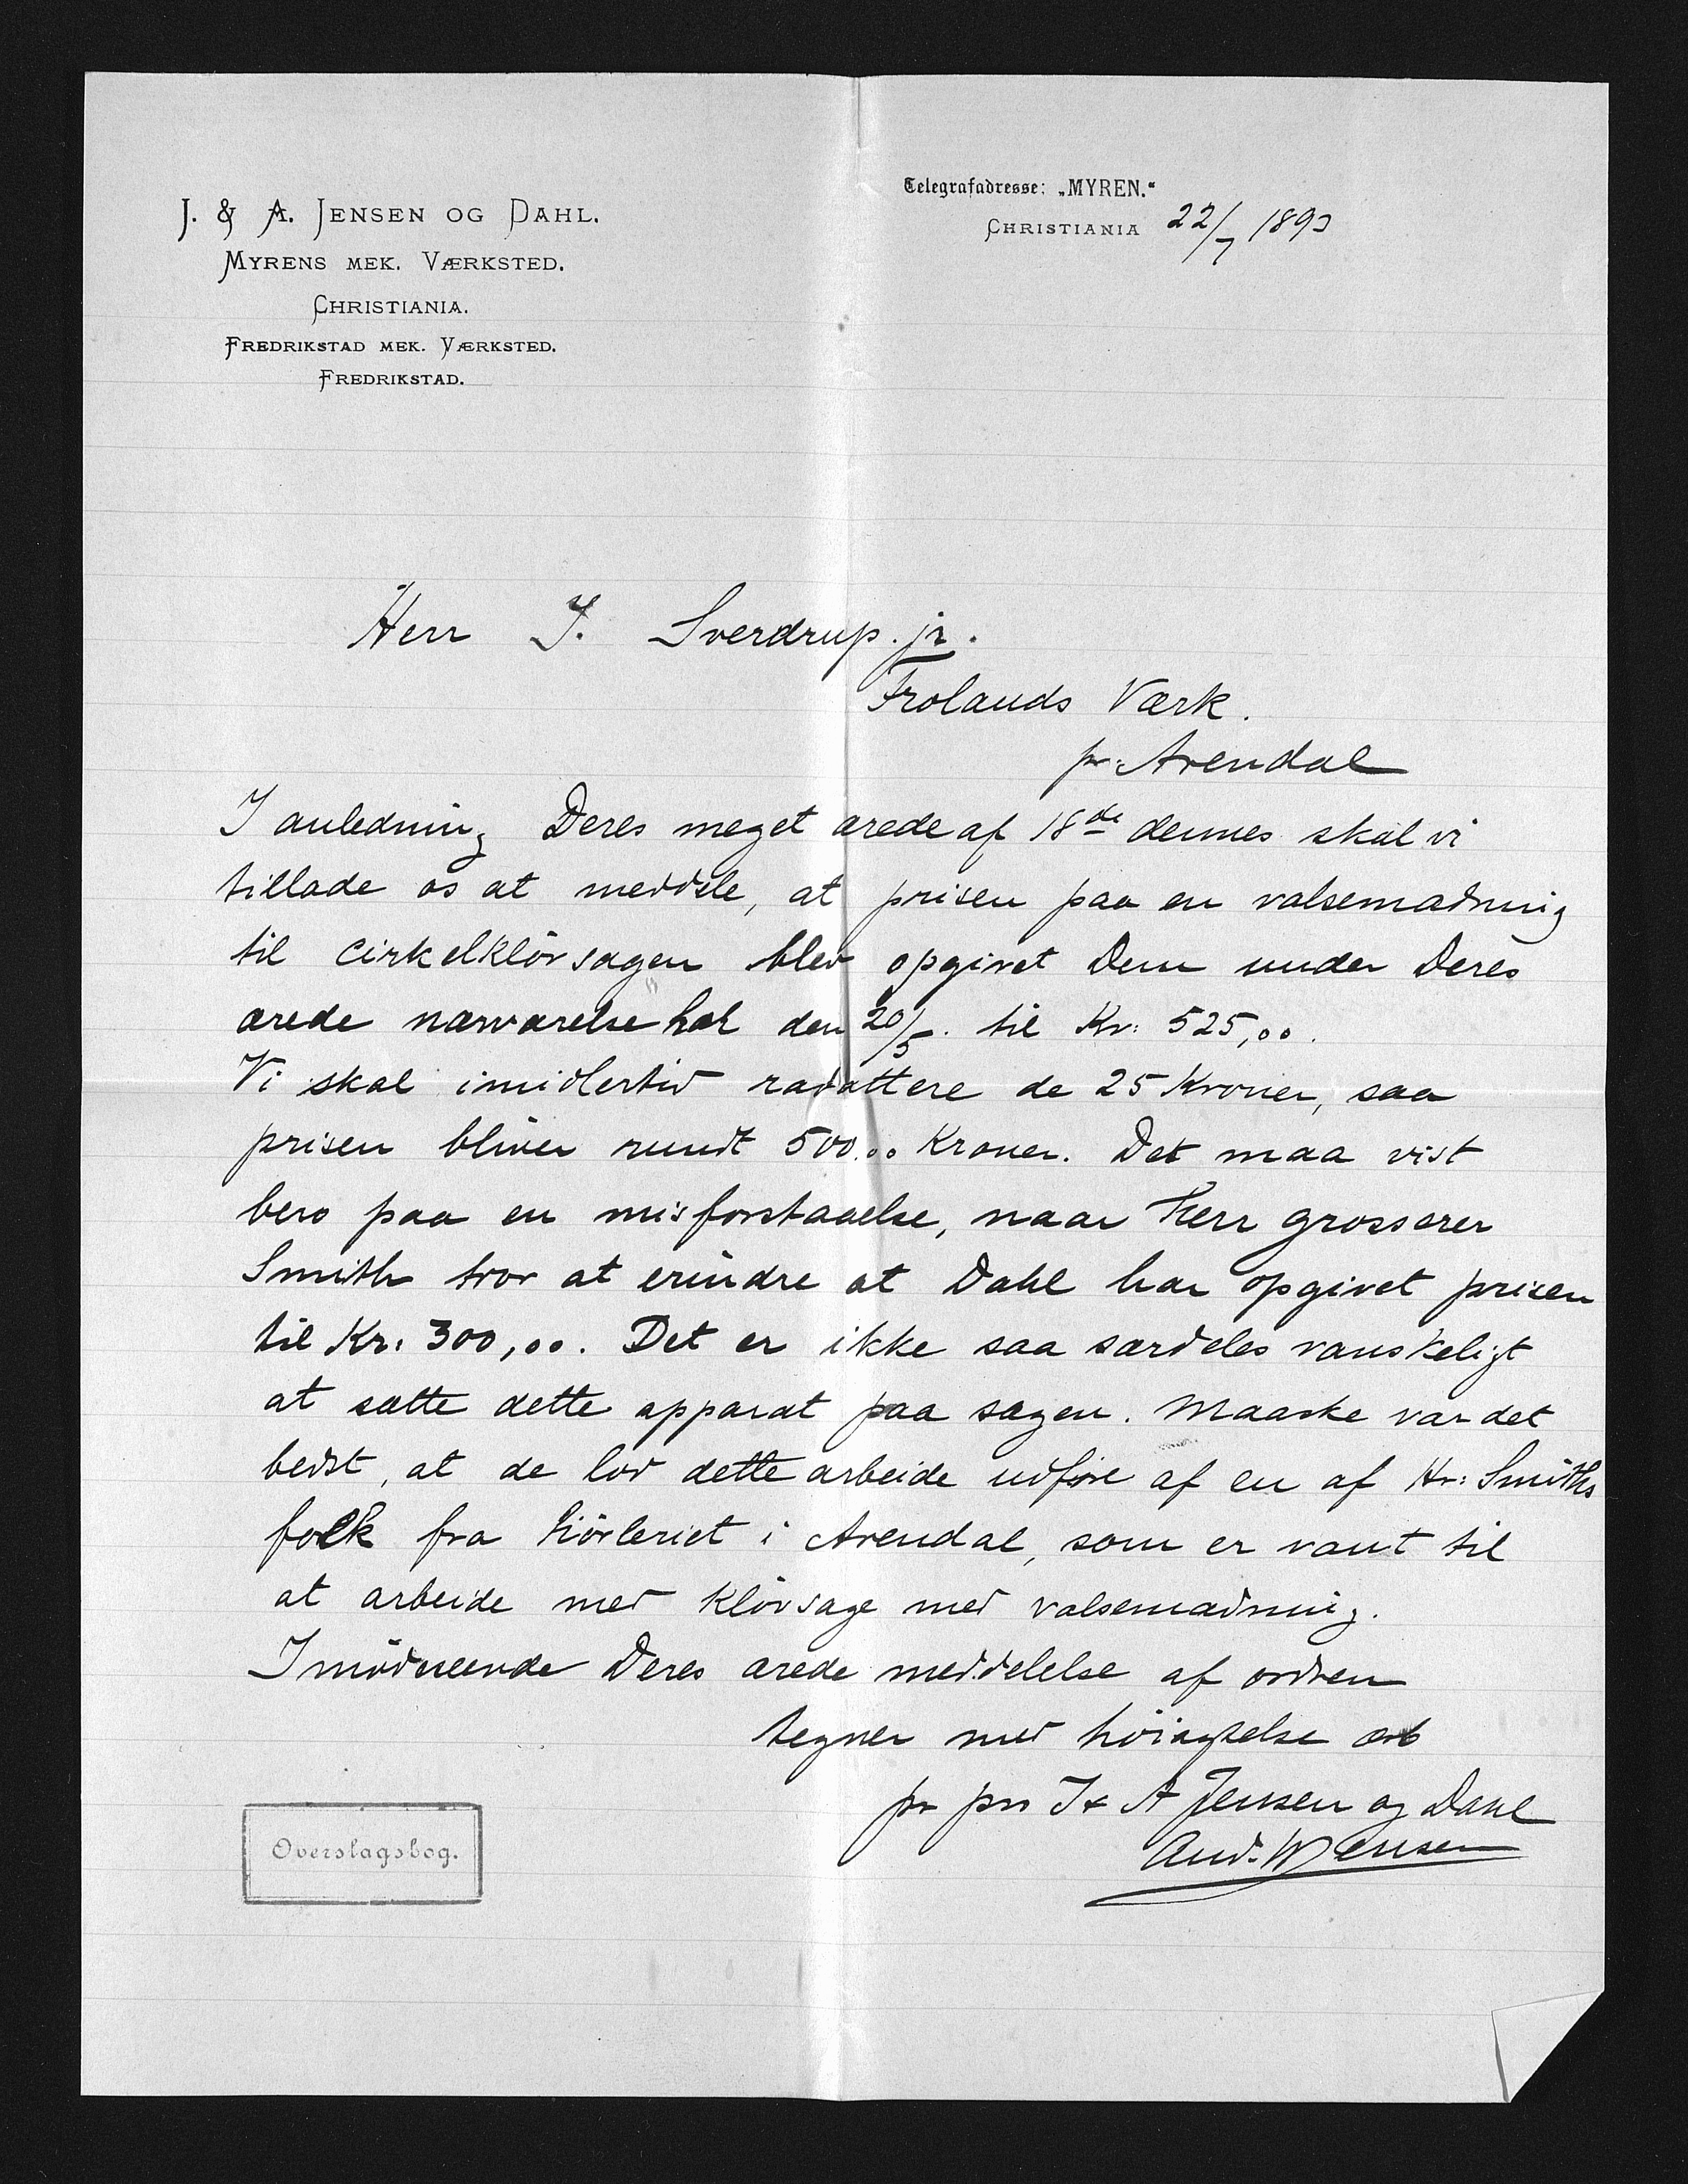 J. & A. JENSEN OG DAHL.
MYRENS MEK. VÆRKSTED.
CHRISTIANIA.
FREDRIKSTAD MEK. VÆRKSTED.
FREDRIKSTAD.
Telegrafadresse: „MYREN.“
CHRISTIANIA 22/7 1893
Herr J. Sverdrup. jr.
Frolands Værk.
pr: Arendal
I anledning Deres meget ærede af 18de dennes skal vi
tillade os at meddele, at prisen paa en valsemadning
til cirkelkløvsagen blev opgivet Dem under Deres
ærede nærværelse her den 20/5. til Kr: 525,00.
Vi skal imidlertid rabattere de 25 Kroner, saa
prisen bliver rundt 500.00 Kroner. Det maa vist
bero paa en misforstaaelse, naar Herr grosserer
Smith tror at erindre at Dahl har opgivet prisen
til Kr: 300,00. Det er ikke saa særdeles vanskeligt
at sætte dette apparat paa sagen. Maaske var det
bedst, at de lod dette arbeide udføre af en af Hr: Smiths
folk fra høvleriet i Arendal, som er vant til
at arbeide med kløvsage med valsemadning.
Imødeseende Deres ærede meddelelse af ordren
tegner med høiagtelse
pr pro J & A Jensen og Dahl
And. W Jensen
Overslagsbog.